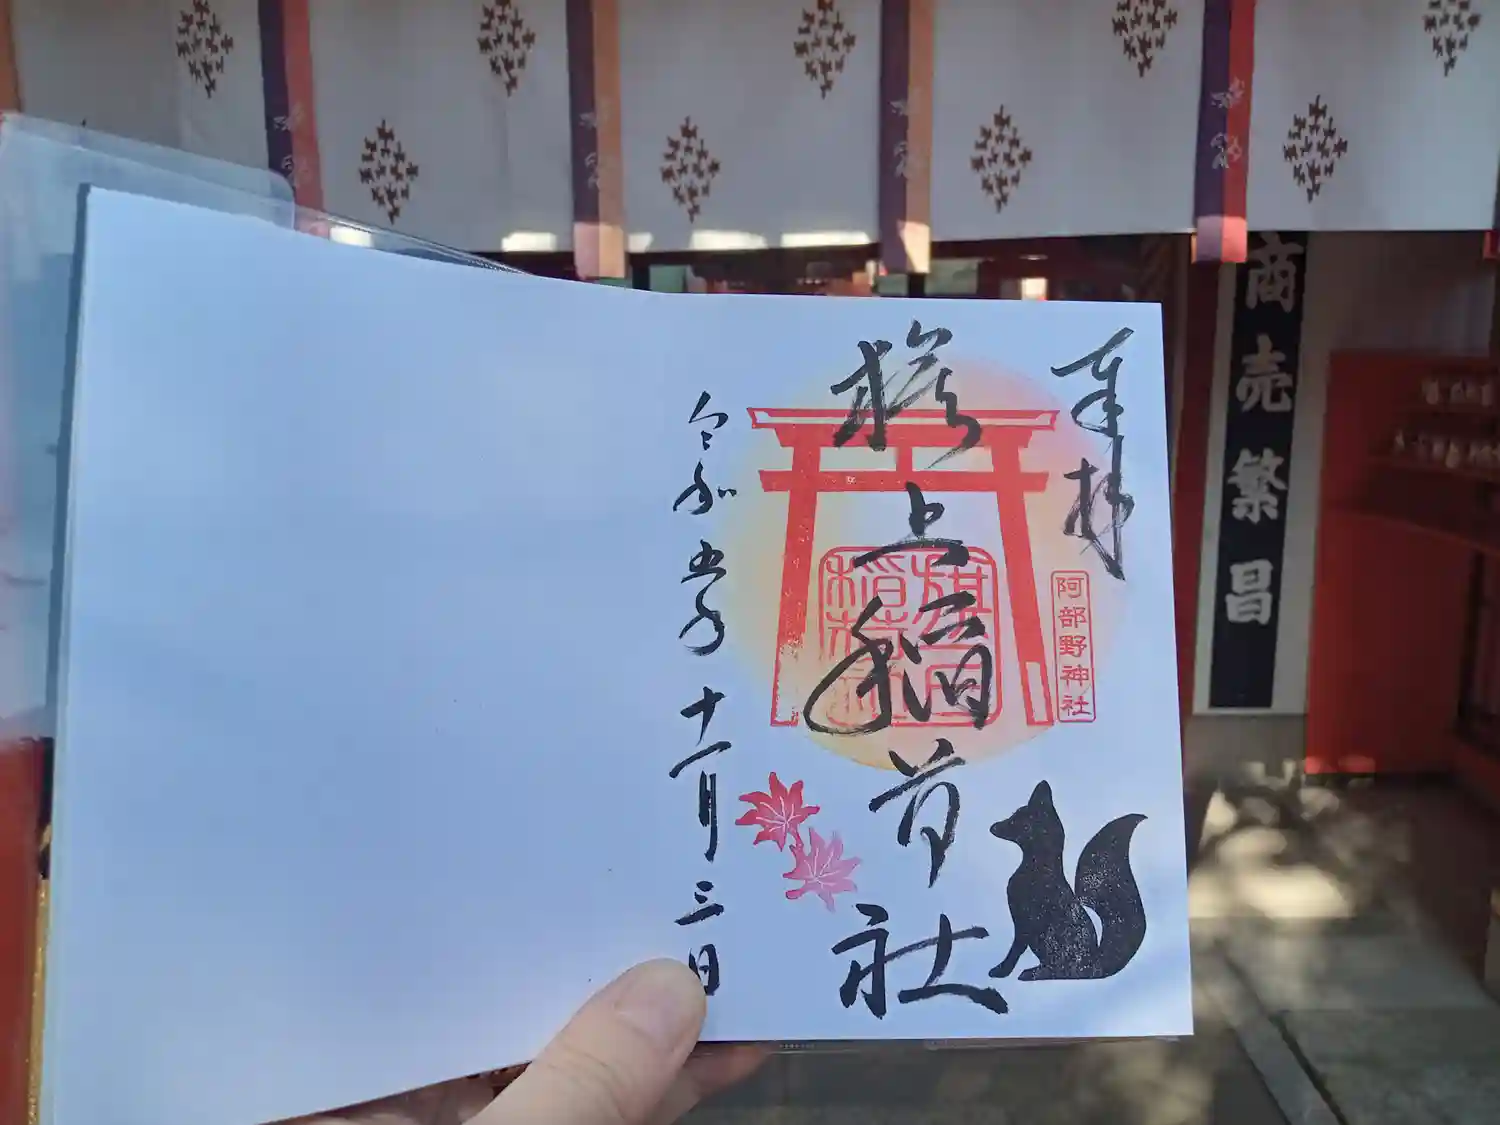 奉拝
旗上稲荷社
令和五年
十一月三日
阿部野神社
旗上稲荷
商売繁昌